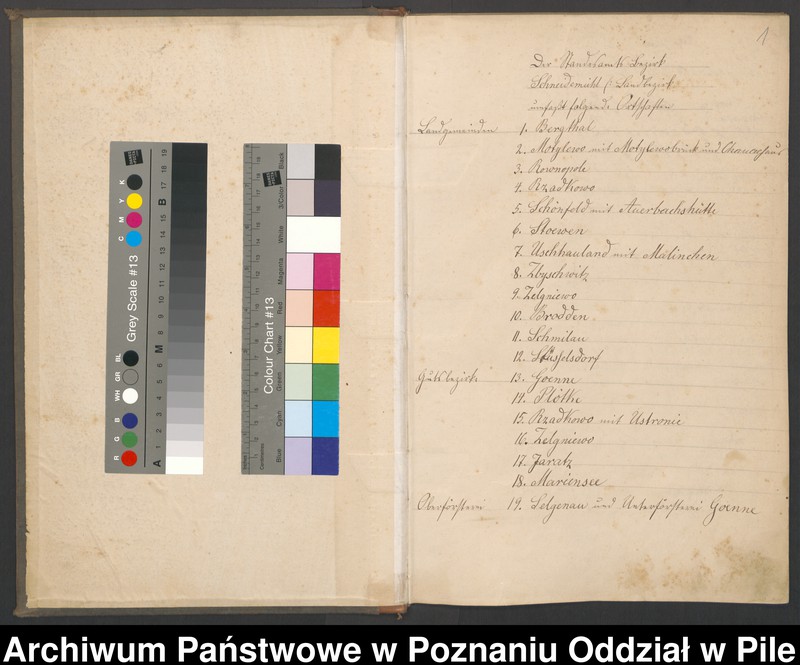 1
Der Standesamts Bezirk
Schneidemühl (Landbezirk
umfaßt folgende Ortschaften
Landgemeinden 1. Bergthal
2. Motylewo mit Motylewobrück und
3. Rownopole
4. Rzadkowo
5. Schönfeld mit Auerbachshütte
6. Stoewen
7. Uschhauland mit Malinchen
8. Zbyschwitz
9. Zelgniewo
10. Brodden.
11. Schmilau
12. Stüsselsdorf
Gutsbezirke 13. Goenne
14. Plöttke
15. Rzadkowo mit Ustronie
16. Zelgniewo
17. Jaratz
18. Mariensee
Oberförsterei 19. Selgenau und Unterförsterei Goenne
Grey Scale #13
R G B WH GR BL C M Y K
A 1 2 3 4 5 6 M 8 9 10 11 12 13 14 15 B 17 18 19
Colour Chart #13
Blue Cyan Green Yellow Red Magenta White 3/Color Black
Inches Centimetres
Archiwum Państwowe w Poznaniu Oddział w Pile